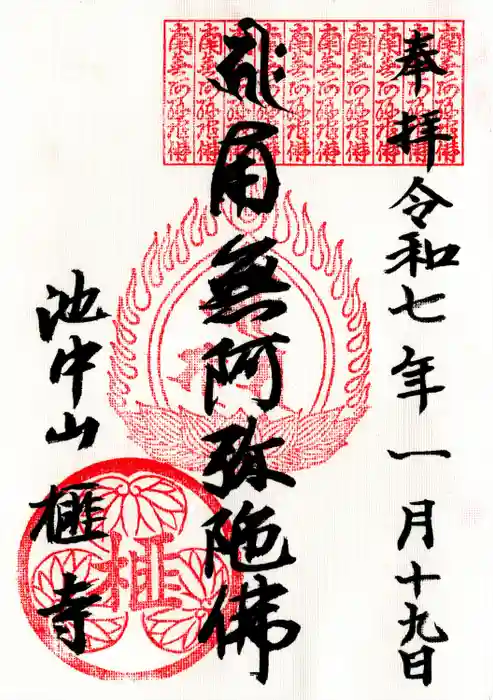 奉拝
令和七年一月十九日
南無阿弥陀佛
南無阿弥陀佛
南無阿弥陀佛
南無阿弥陀佛
南無阿弥陀佛
南無阿弥陀佛
南無阿弥陀佛
南無阿弥陀佛
南無阿弥陀佛
南無阿弥陀佛
南無阿弥陀佛
池中山
榧寺
榧